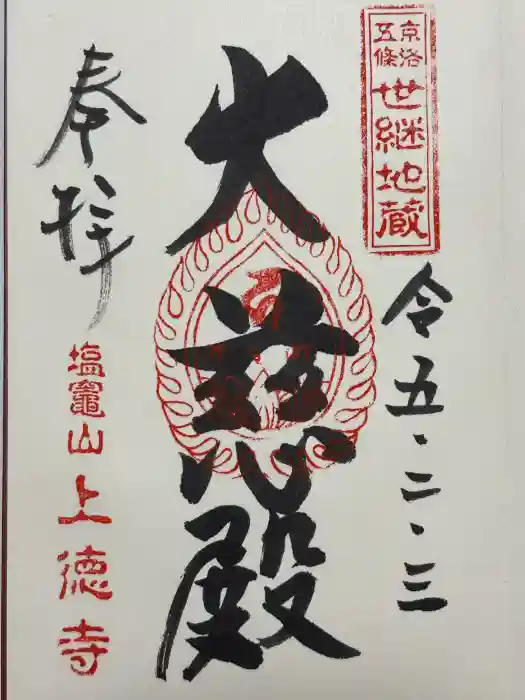 京洛
五條
世継地蔵
令五・二・三
大慈殿
奉拝
塩竈山
上徳寺